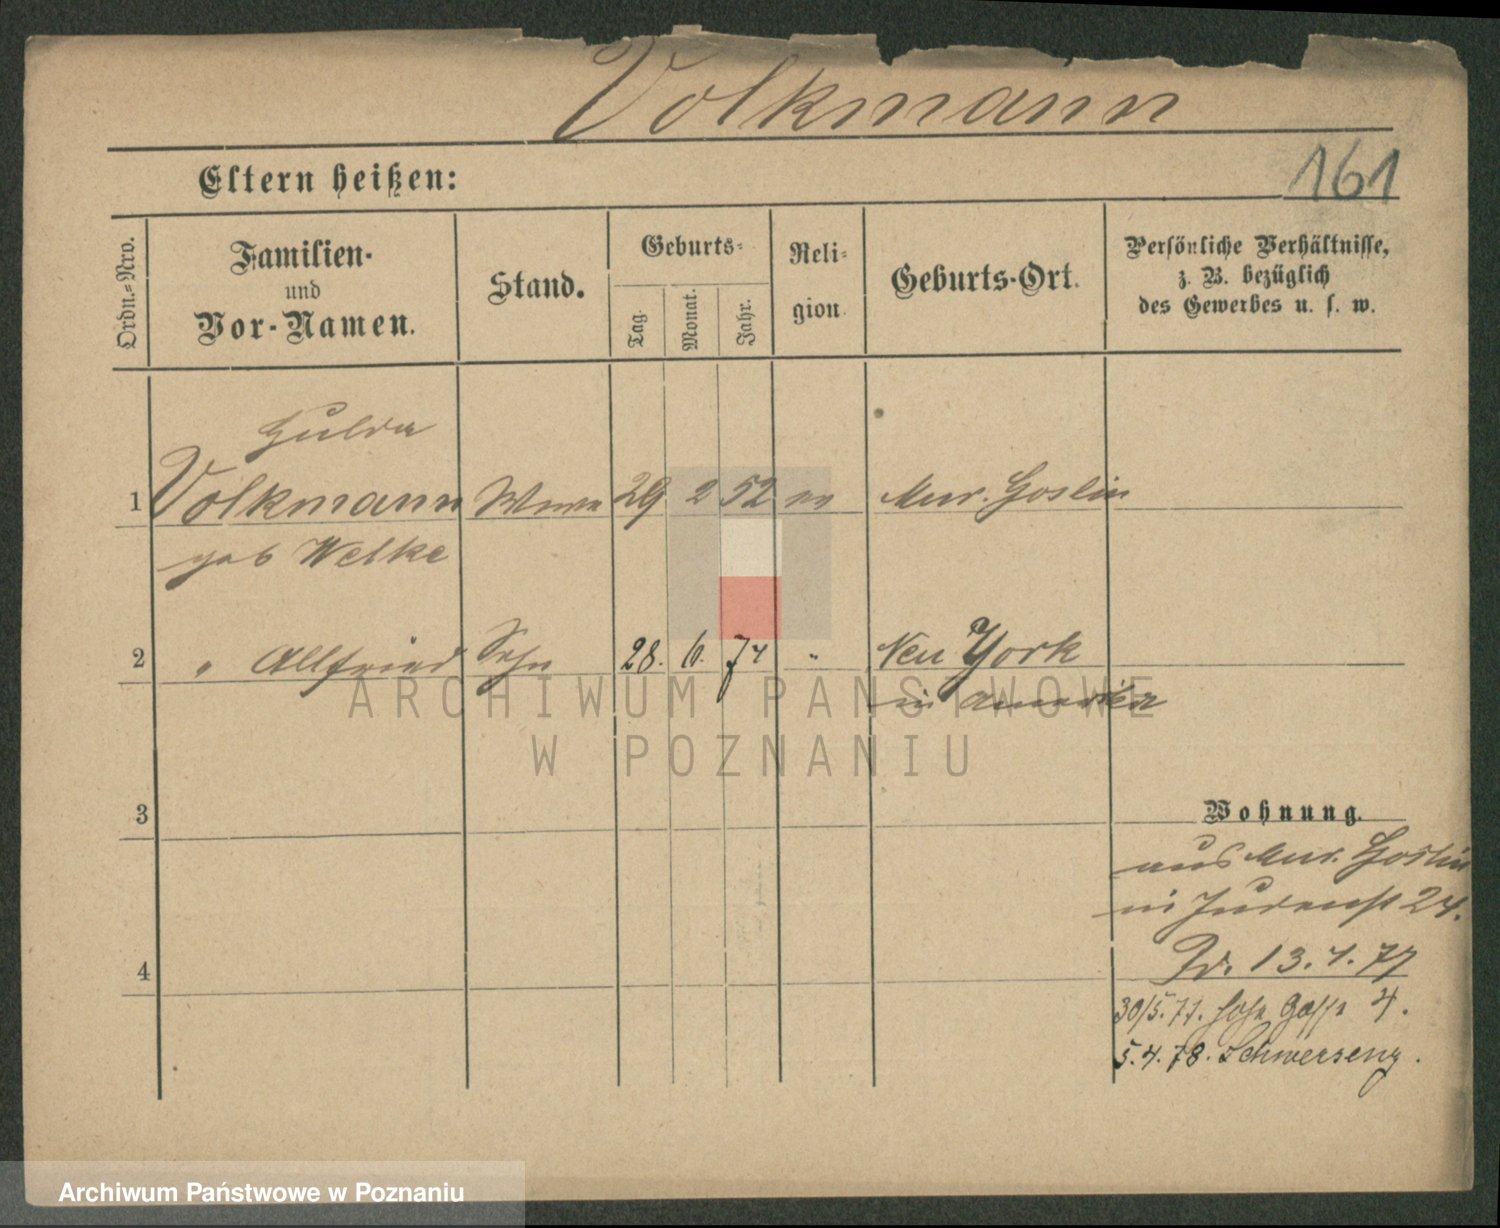 Volkmann
Eltern heißen:
161
Ordn.-Nro.
Familien-
und
Vor-Namen.
Stand.
Geburts-
Tag.
Monat.
Jahr.
Reli-
gion.
Geburts-Ort.
Persönliche Verhältnisse,
z. B. bezüglich
des Gewerbes u. s. w.
Hulda
1 Volkmann Wwe 29 2 52 ev Mur. Goslin
geb Welke
2 " Allfried Sohn 28. 6. 74 " Neu York
in Amerika
ARCHIWUM PAŃSTWOWE
W POZNANIU
3
Wohnung.
aus Mur. Goslin
in Judenst 24.
4
13. 4. 77
30/5. 77. hohe Gasse 4.
5. 4. 78. Schwersenz.
Archiwum Państwowe w Poznaniu